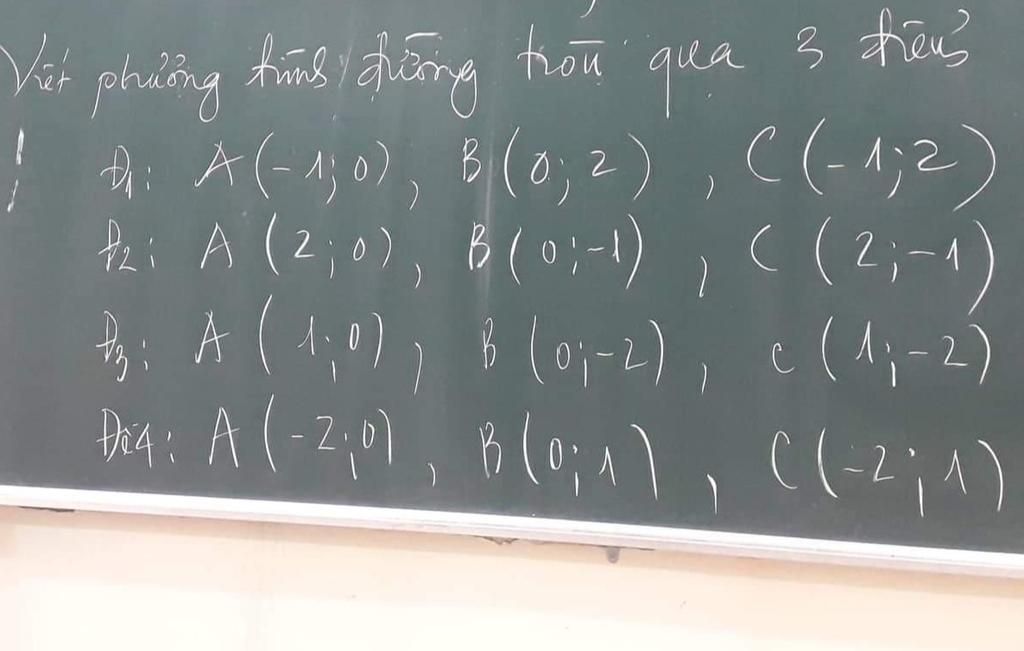 Viết phương trình đường tròn qua 3 điểm
Đ1: A(-1;0), B(0;2), C(-1;2)
Đ2: A(2;0), B(0;-1), C(2;-1)
Đ3: A(1;0), B(0;-2), C(1;-2)
Đề4: A(-2;0), B(0;1), C(-2;1)